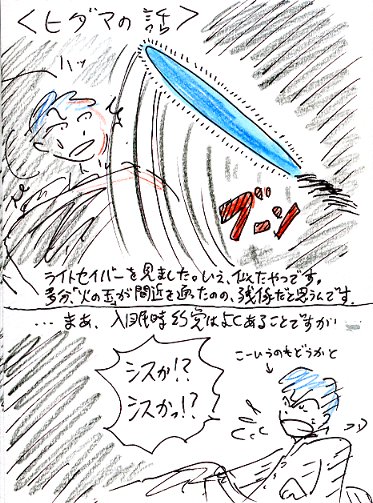 ＜ヒダマの話＞
ハッ
ブーン
ライトセイバーを見ました。いえ、似たやつです。
多分、火の玉が間近を通ったのの、残像だと思うんです。
…まあ、入眠時幻覚はよくあることですが
シスか!?
シスかっ!?
こーいうのもどうかと